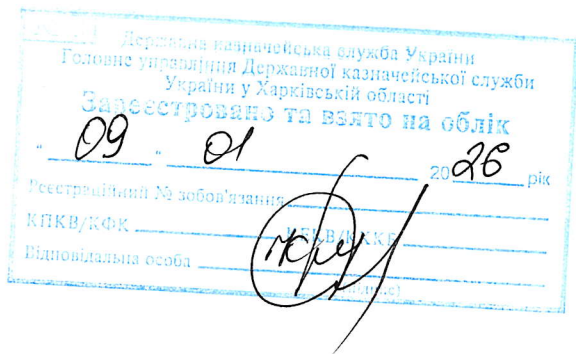 Державна казначейська служба України
Головне управління Державної казначейської служби
України у Харківській області
Зареєстровано та взято на облік
" 09 " 01 2026 рік
Реєстраційний № зобов'язання
КПКВ/КФК КЕКВ/ККК
Відповідальна особа